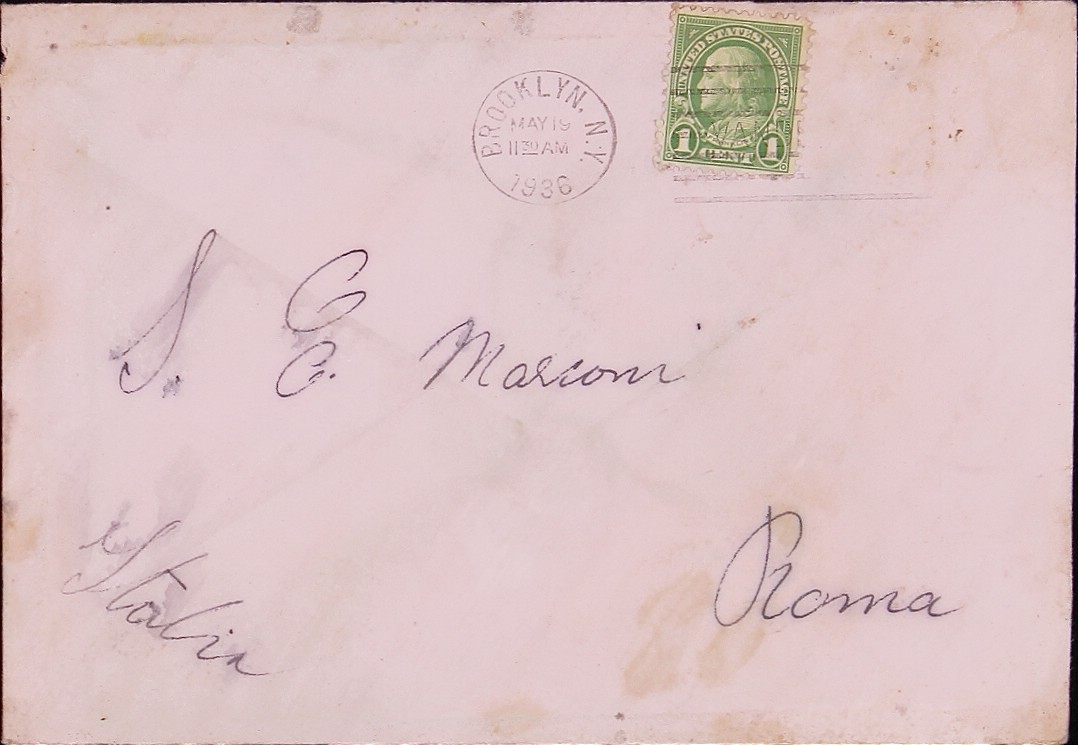 BROOKLYN, N.Y.
MAY 19
11 30 AM
1936
UNITED STATES POSTAGE
1 CENT 1
S. E. G. Marconi
Roma
Italia